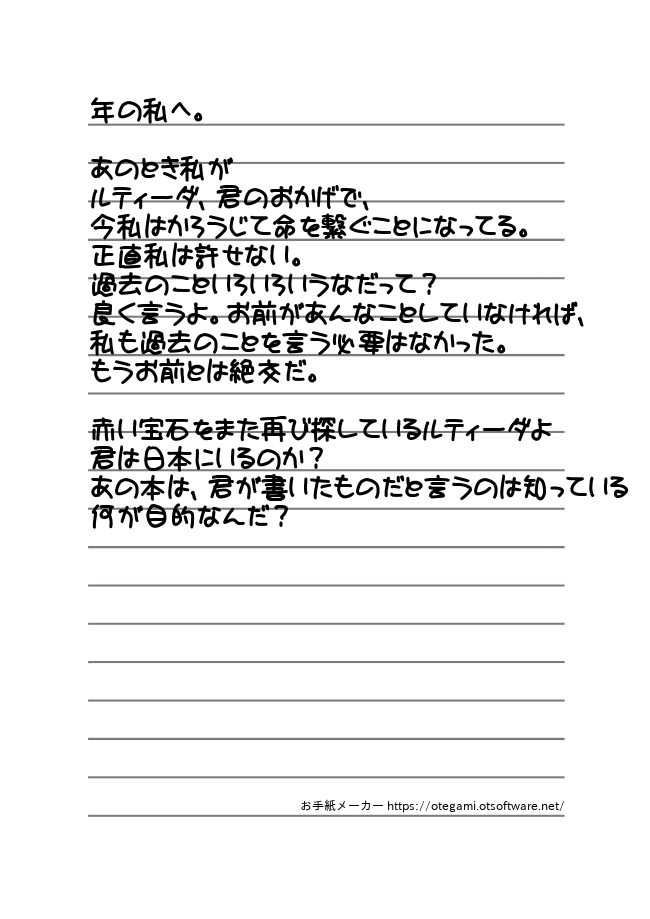 年の私へ。
あのとき私が
ルティーダ、君のおかげで、
今私はかろうじて命を繋ぐことになってる。
正直私は許せない。
過去のこといろいろいうなだって？
良く言うよ。お前があんなことしていなければ、
私も過去のことを言う必要はなかった。
もうお前とは絶交だ。
赤い宝石をまた再び探しているルティーダよ
君は日本にいるのか？
あの本は、君が書いたものだと言うのは知っている
何が目的なんだ？
お手紙メーカー https://otegami.otsoftware.net/